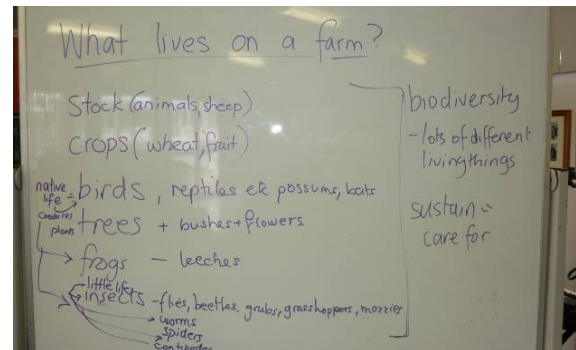 What lives on a farm?
Stock (animals, sheep)
crops (wheat, fruit)
native life = birds, reptiles etc possums, bats
creatures
plants trees + bushes + flowers
frogs – leeches
little life
insects - flies, beetles, grubs, grasshoppers, mozzies
worms
spiders
centipedes
biodiversity
- lots of different
living things
sustain =
care for